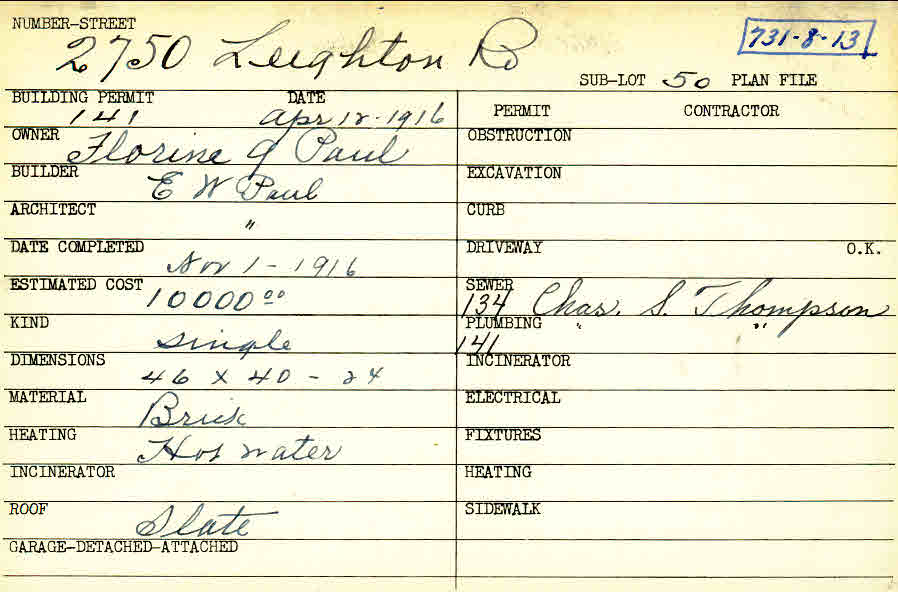 NUMBER-STREET
2750 Leighton Rd
731-8-13
SUB-LOT 50 PLAN FILE
BUILDING PERMIT DATE
141 Apr 12-1916
OWNER
Florine G Paul
BUILDER
E W Paul
ARCHITECT
"
DATE COMPLETED
Nov 1-1916
ESTIMATED COST
10000 00
KIND
Single
DIMENSIONS
46 x 40 - 24
MATERIAL
Brick
HEATING
Hot water
INCINERATOR
ROOF
Slate
GARAGE-DETACHED-ATTACHED
PERMIT CONTRACTOR
OBSTRUCTION
EXCAVATION
CURB
DRIVEWAY O.K.
SEWER
134 Chas. S. Thompson
PLUMBING " "
141
INCINERATOR
ELECTRICAL
FIXTURES
HEATING
SIDEWALK